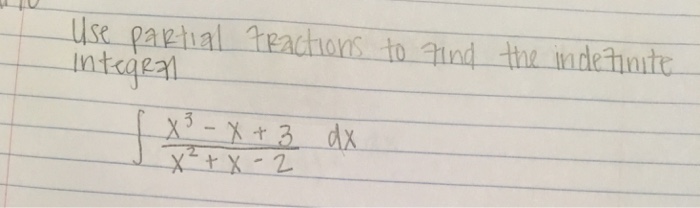 Use partial fractions to find the indefinite
integral
∫ x³ - x + 3 / x² + x - 2 dx